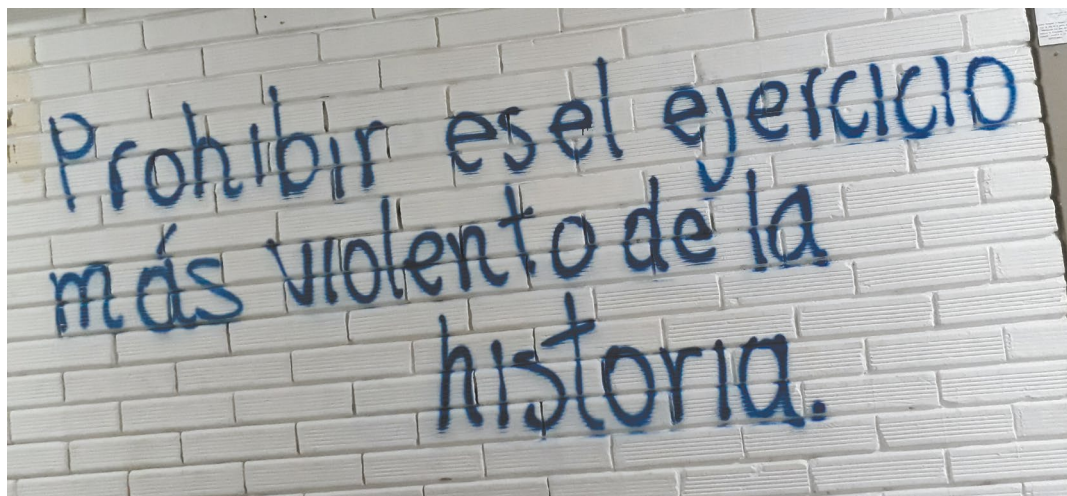 Prohibir es el ejercicio
más violento de la
historia.